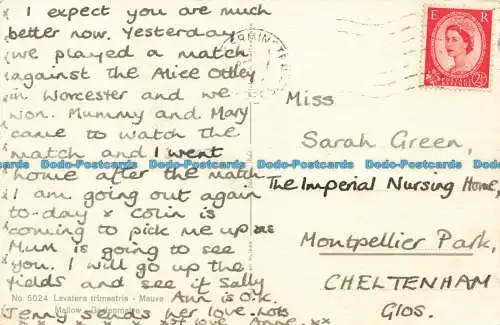 I expect you are much
better now. Yesterday
we played a match
against the Alice Ottley
in Worcester and we
won. Mummy and Mary
came to watch the
match and I went
home after the match
I am going out again
to-day & Colin is
coming to pick me up as
Mum is going to see
you. I will go up the
fields and see if Sally
Ann is O.K.
Jenny sends her love. Lots
of love Anne. xx
No. 5024 Lavatera trimestris - Mauve
Mallow
E R
POSTAGE
2½D
Miss
Sarah Green,
The Imperial Nursing Home,
Montpellier Park,
CHELTENHAM
Glos.
Dobs-Postcards Dobs-Postcards Dobs-Postcards Dobs-Postcards